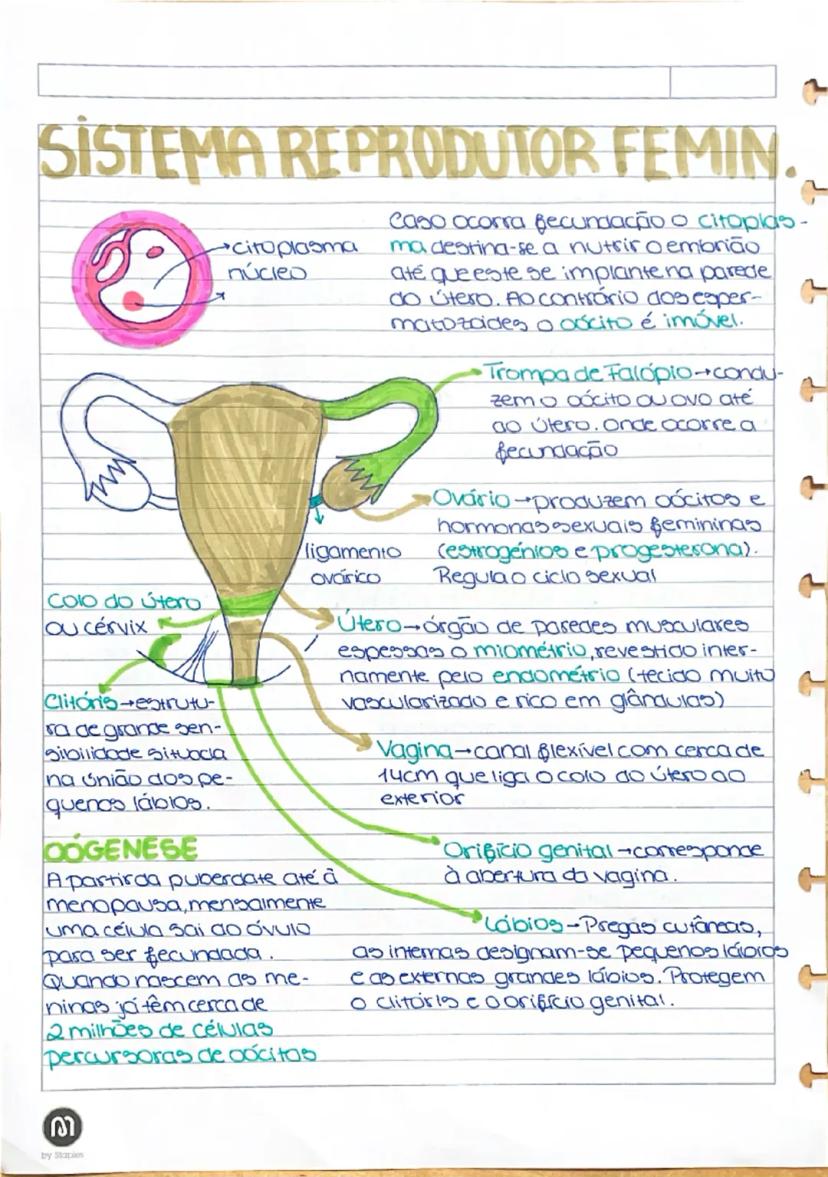 SISTEMA REPRODUTOR FEMIN.
citoplasma
núcleo
Caso ocorra fecundação o citoplas-
ma destina-se a nutrir o embrião
até que este se implante na parede
do útero. Ao contrário dos esper-
matozoides o oócito é imóvel.
Trompa de Falópio→condu-
zem o oócito ou ovo até
ao útero. onde ocorre a
fecundação
Ovário→produzem oócitos e
hormonas sexuais femininas
(estrogénios e progesterona).
Regula o ciclo sexual
ligamento
ovárico
Colo do útero
ou cérvix
Útero→órgão de paredes musculares
espessas o miométrio, revestido inter-
namente pelo endométrio (tecido muito
vascularizado e rico em glândulas)
Clitóris→estrutu-
ra de grande sen-
sibilidade situada
na união dos pe-
quenos lábios.
Vagina→canal flexível com cerca de
14cm que liga o colo do útero ao
exterior
Orifício genital→corresponde
à abertura da vagina.
Lábios→Pregas cutâneas,
as internas designam-se pequenos lábios
e as externas grandes lábios. Protegem
o clitóris e o orifício genital.
OÓGENESE
A partir da puberdate até à
menopausa, mensalmente
uma célula sai do óvulo
para ser fecundada.
Quando nascem as me-
ninas já têm cerca de
2 milhões de células
percursoras de oócitos
by Staples